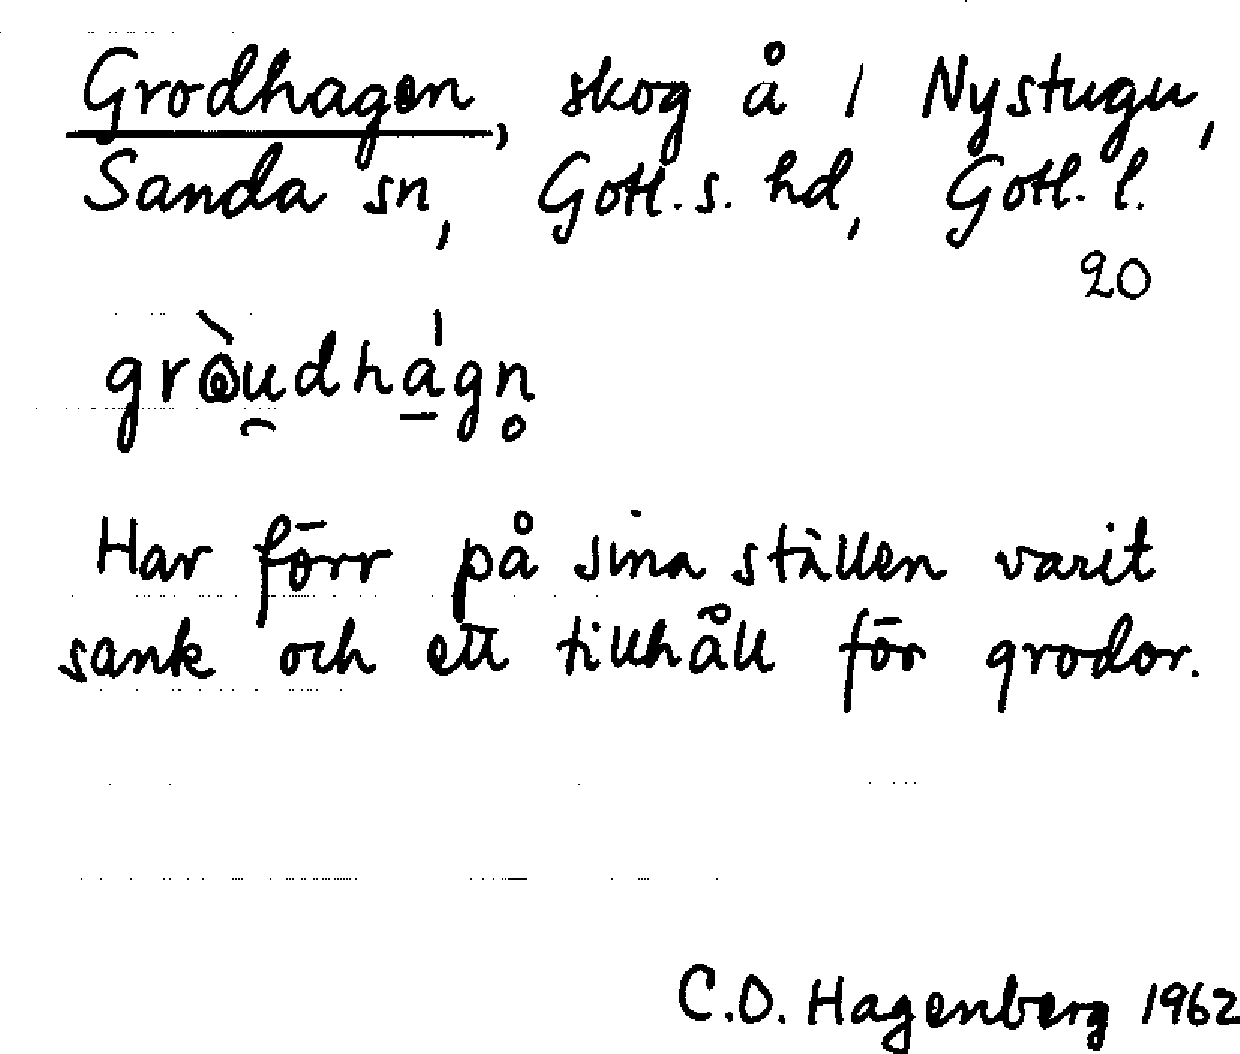 Grodhagen, skog å 1 Nystugu,
Sanda sn, Gotl. s. hd, Gotl. l.
20
Har förr på sina ställen varit
sank och ett tillhåll för grodor.
C.O. Hagenberg 1962